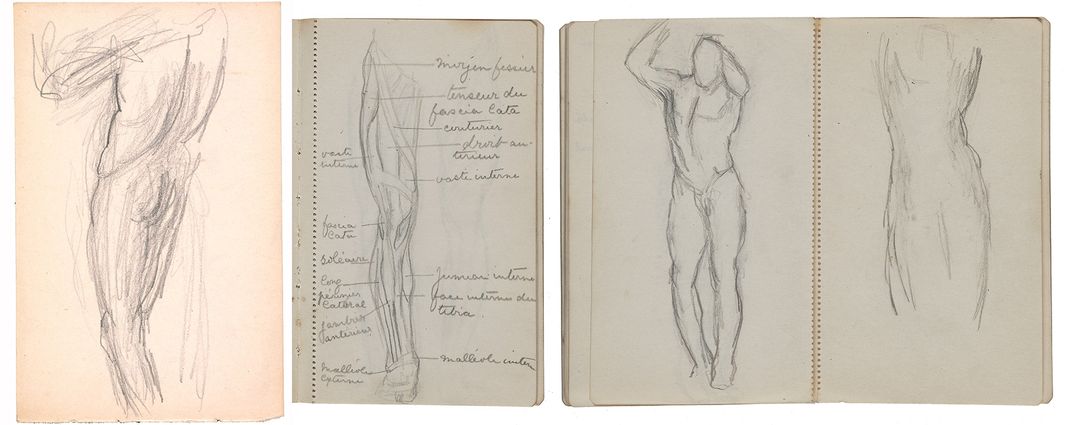 moyen fessier
tenseur du
fascia lata
couturier
droit an-
térieur
vaste interne
vaste
interne
fascia
lata
soléaire
long
péronier
latéral
jambier
antérieur
jumeau interne
face interne du
tibia.
malléole
externe
malléole